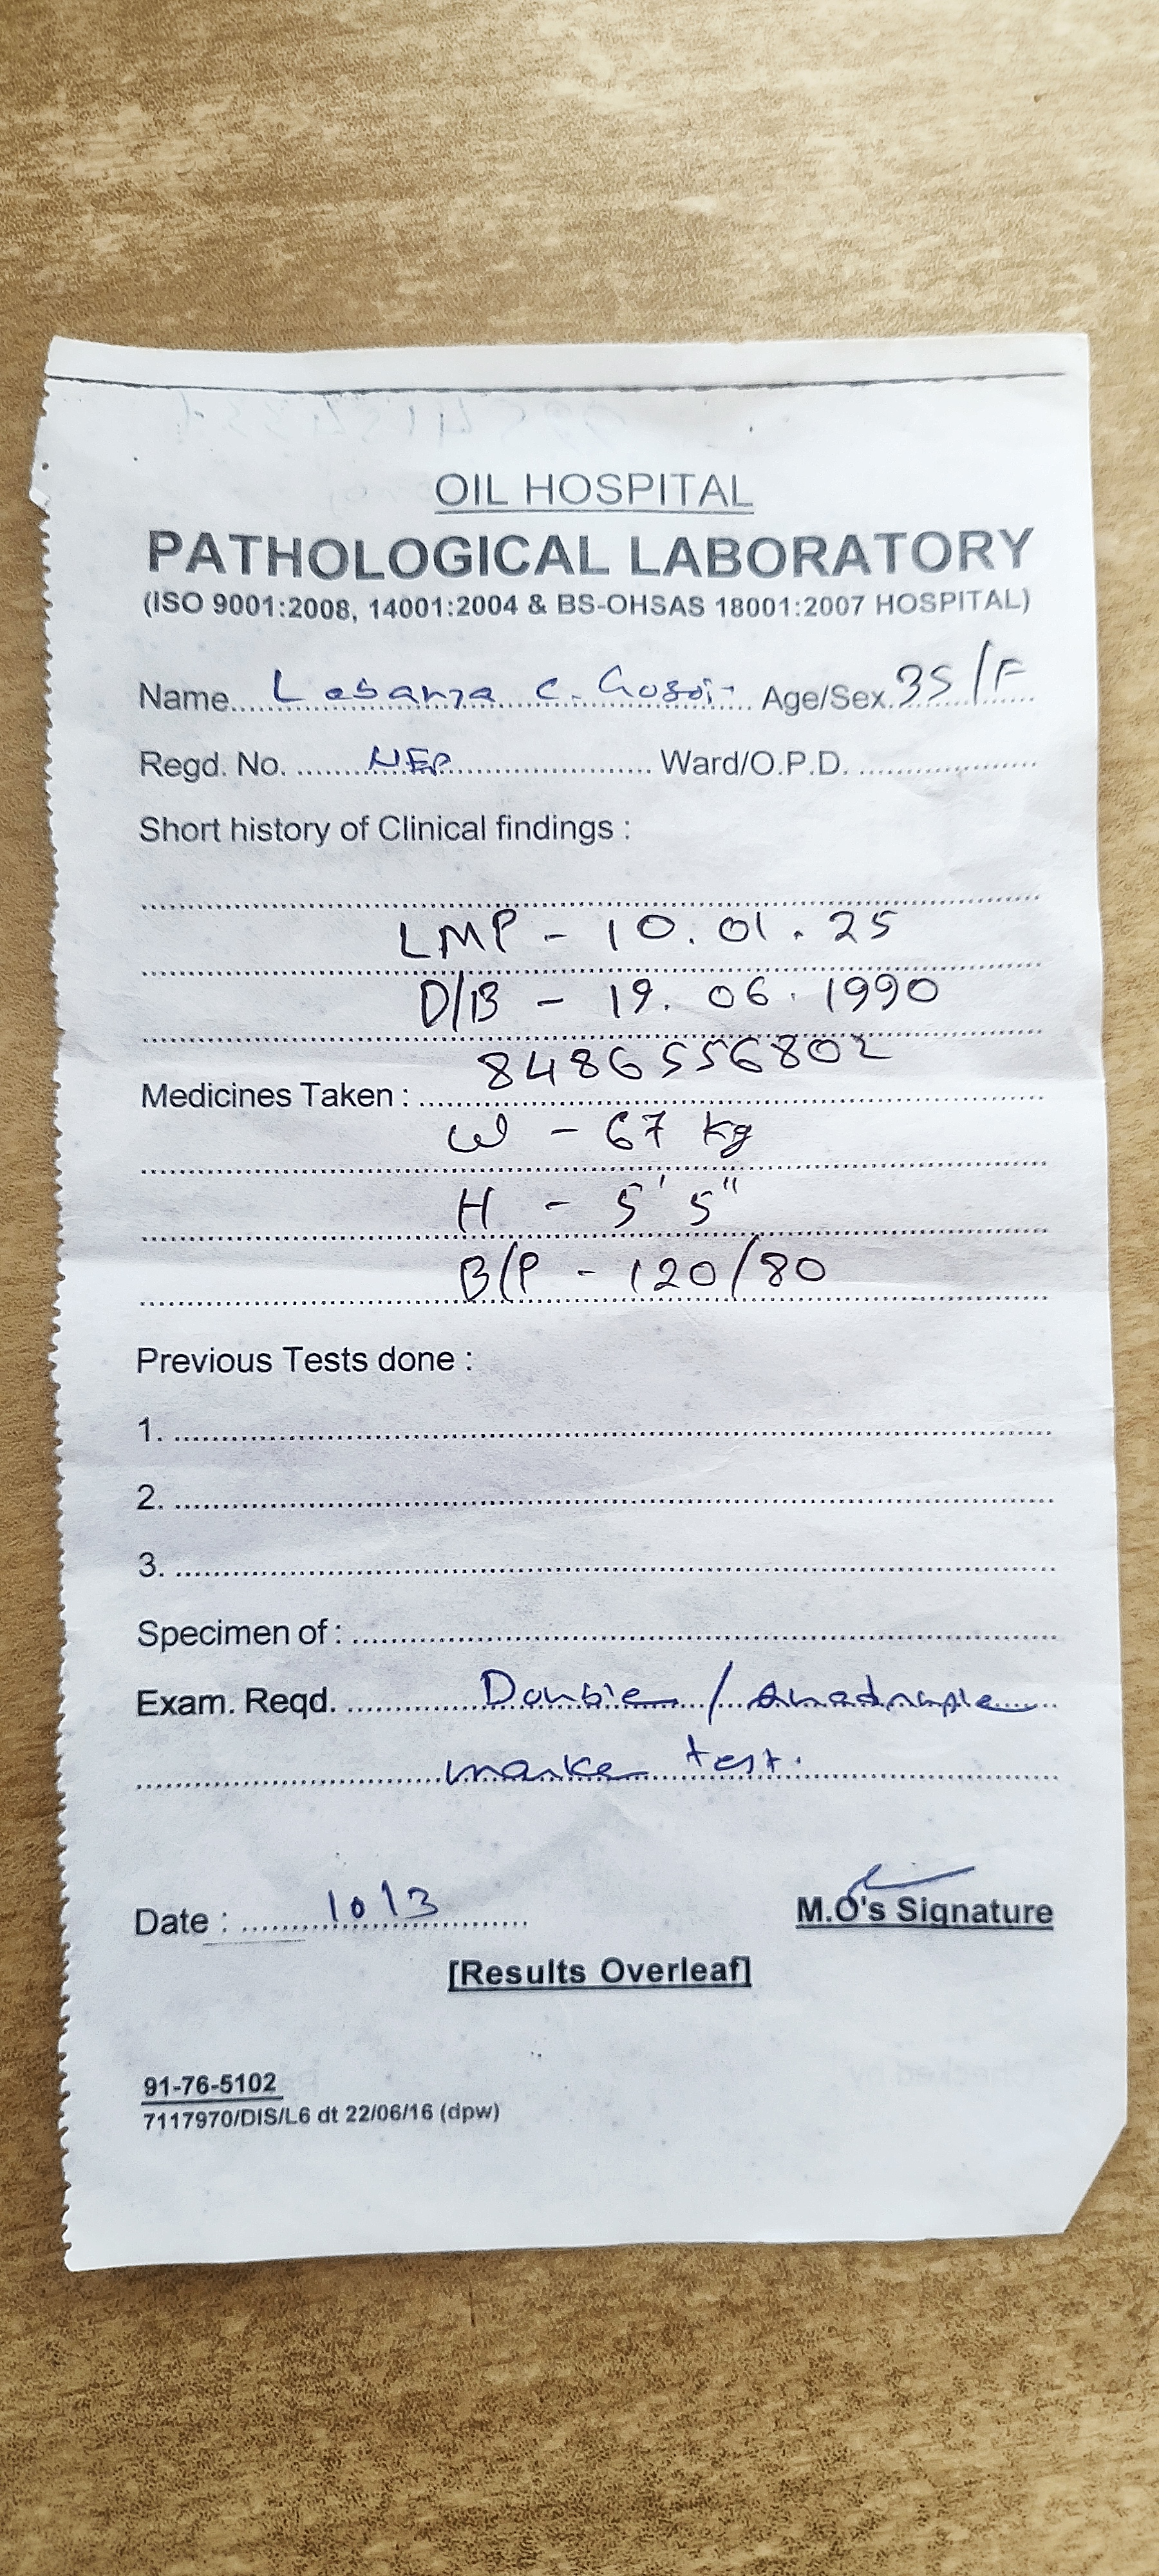 OIL HOSPITAL
PATHOLOGICAL LABORATORY
(ISO 9001:2008, 14001:2004 & BS-OHSAS 18001:2007 HOSPITAL)
Name Labanya C. Gogoi Age/Sex. 35/F
Regd. No. NEP Ward/O.P.D.
Short history of Clinical findings :
LMP - 10.01.25
D/B - 19.06.1990
8486556802
Medicines Taken :
W - 67 kg
H - 5' 5"
B/P - 120/80
Previous Tests done :
1.
2.
3.
Specimen of :
Exam. Reqd. Double / Quadruple
marker test.
Date : 10/3 M.O's Signature
[Results Overleaf]
91-76-5102
7117970/DIS/L6 dt 22/06/16 (dpw)